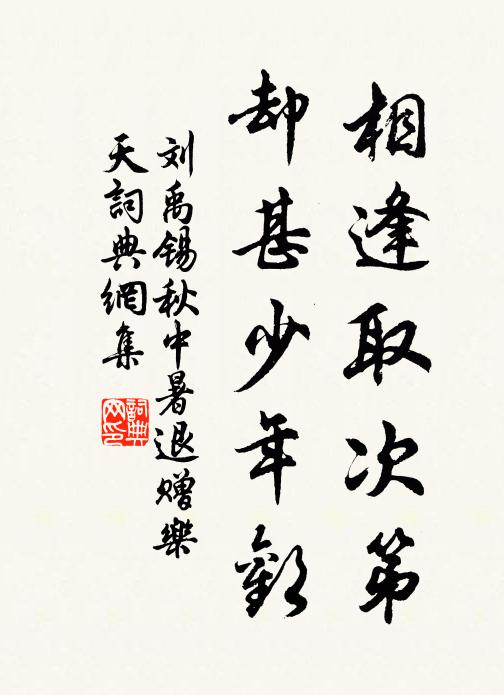 相逢取次第
却甚少年歡
刘禹锡秋中暑退赠樂
天詞典網集
詞典
网印